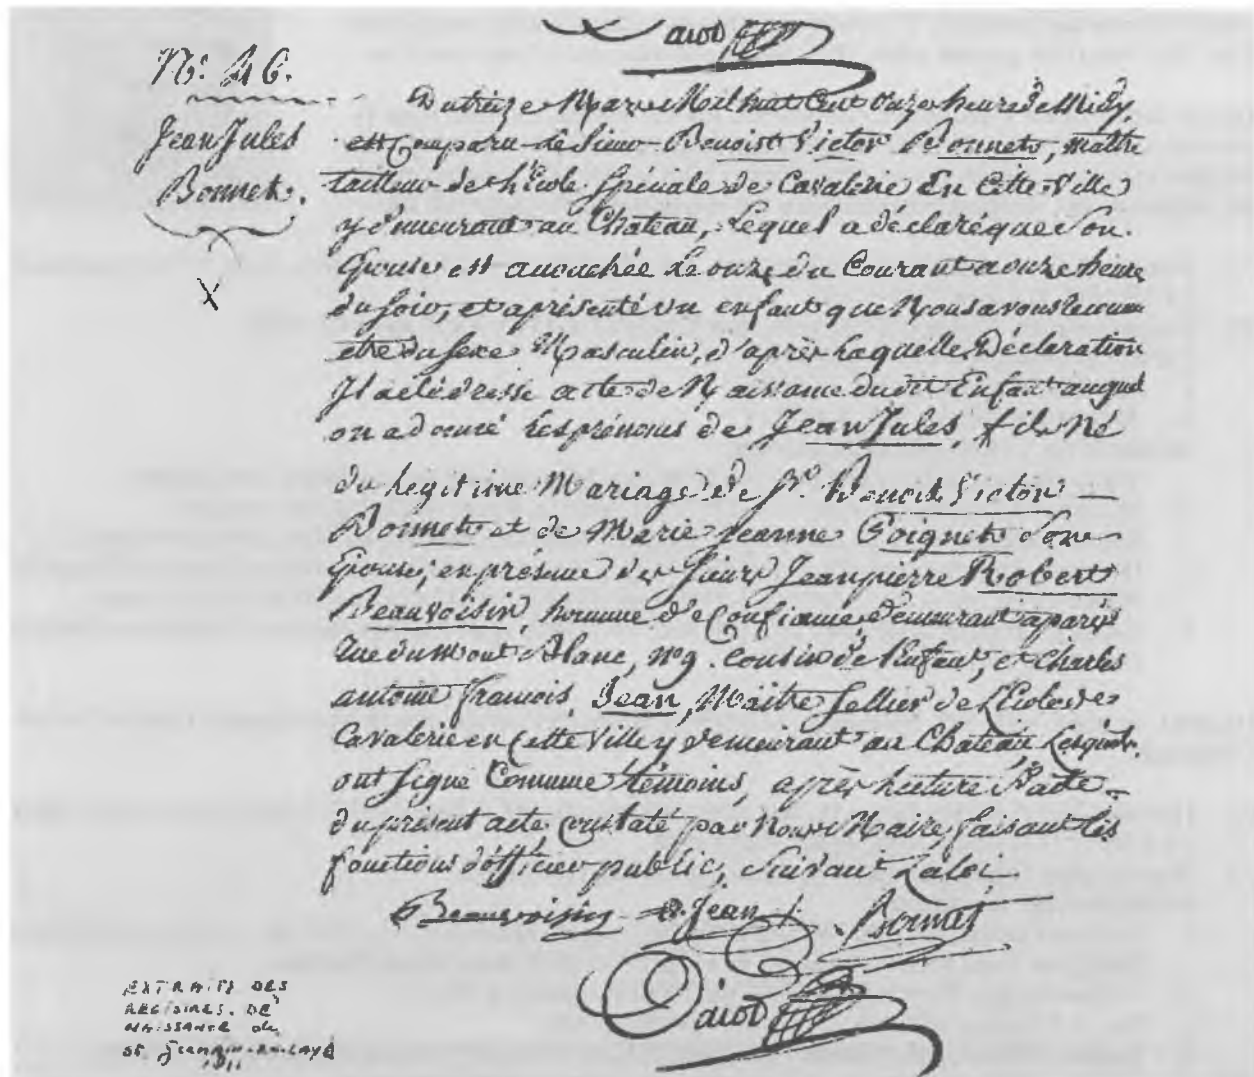 N.º 46.
Jean Jules
Bonnet.
X
Du treize Mars Mil huit Cent Onze heure de Midy,
est Comparu le Sieur Benoist Victor Bonnet, maître
tailleur de L'École Spéciale de Cavalerie En Cette Ville
y demeurant au Chateau, Lequel a déclaré que Son
Epouse est accouchée Le onze du Courant a onze heure
du soir, et a présenté un enfant que Nous avons reconnu
etre du Sexe Masculin, d'après Laquelle Déclaration
Il a été dressé acte de Naissance dudit Enfant auquel
on a donné Les prénoms de Jean Jules, fils Né
du Legitime Mariage de Sr. Benoist Victor
Bonnet et de Marie Jeanne Poignet Son
Epouse; en présence des Sieurs Jean pierre Robert
Beauvoisin, homme de Confiance, demeurant a paris
Rue du Mont Blanc, Nº 9. Cousin de l'enfant, et Charles
antoine françois Jean, Maître Sellier de L'Ecole de
Cavalerie en Cette Ville y demeurant au Chateau, Lesquels
ont Signé Comme témoins, après Lecture faite
du présent acte Constaté par Nous Maire, faisant Les
fonctions d'officier public, Suivant La Loi
Beauvoisin Jean Bonnet
EXTRAIT DES
REGISTRES DE
NAISSANCE de
St. Germain-en-Laye
1811